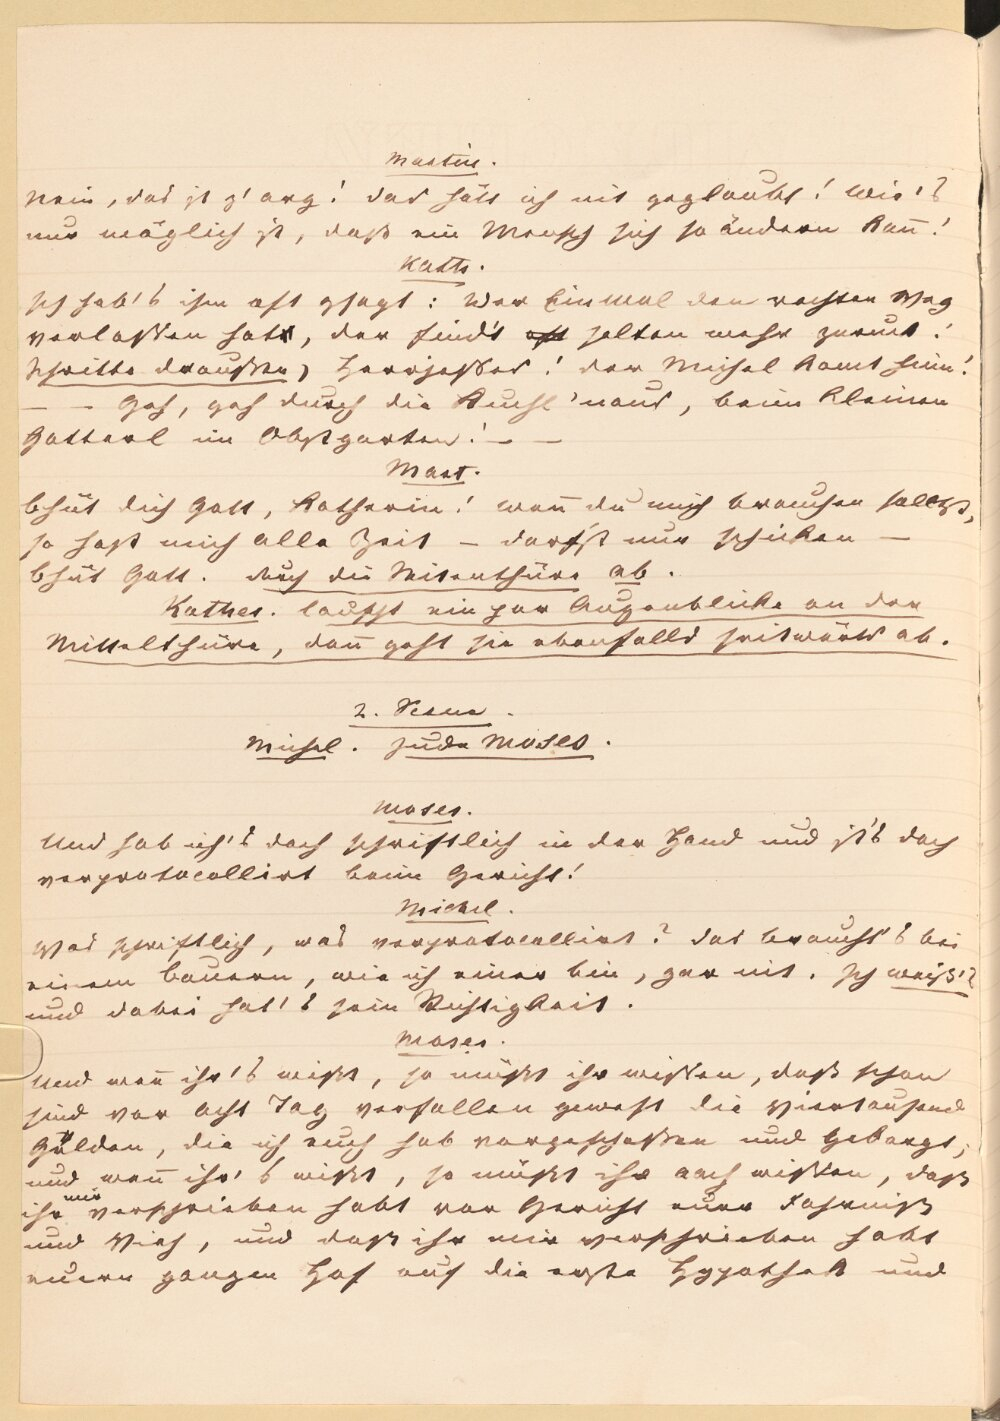 Martin.
Nein, das ist z' arg! das hätt ich nit geglaubt! Wie's
nur möglich ist, daß ein Mensch sich so ändern kañ!
Kath.
Ich hab's ihm oft gsagt: Wer Einmal den rechten Weg
verlaßen hat, der find's oft selten mehr zuruck!
Schritte draußen, Herrjesses! der Michel komt heim!
— — Geh, geh durch die Kuchl 'naus, beim kleinen
Gatterl im Obstgarten! — —
Mart.
Bhüt dich Gott, Katherin! weñ du mich brauchen solltst,
so hast mich alle Zeit — darfst nur schicken —
bhüt Gott. durch die Seitenthüre ab.
Kather. lauscht ein par Augenblicke an der
Mittelthüre, dañ geht sie ebenfalls seitwärts ab.
2. Scene.
Michel. Jude Moses.
Moses.
Und hab ich's doch schriftlich in der Hand und ist's doch
verprotocollirt beim Gericht!
Michel.
Was schriftlich, was verprotocollirt? das braucht's bei
einem Bauern, wie ich einer bin, gar nit. Ich weiß's
und dabei hat's sein Richtigkeit.
Moses.
Und weñ ihr's wißt, so müßt ihr wißen, daß schon
sind vor acht Tag verfallen gewest die Viertausend
Gulden, die ich euch hab vorgeschoßen und geborgt;
und weñ ihr's wißt, so müßt ihr aach wißen, daß
ihr mir verschrieben habt vor Gericht eure Fahrniß
und Vieh, und daß ihr mir verschrieben habt
euern ganzen Hof auf die erste Hypothek und